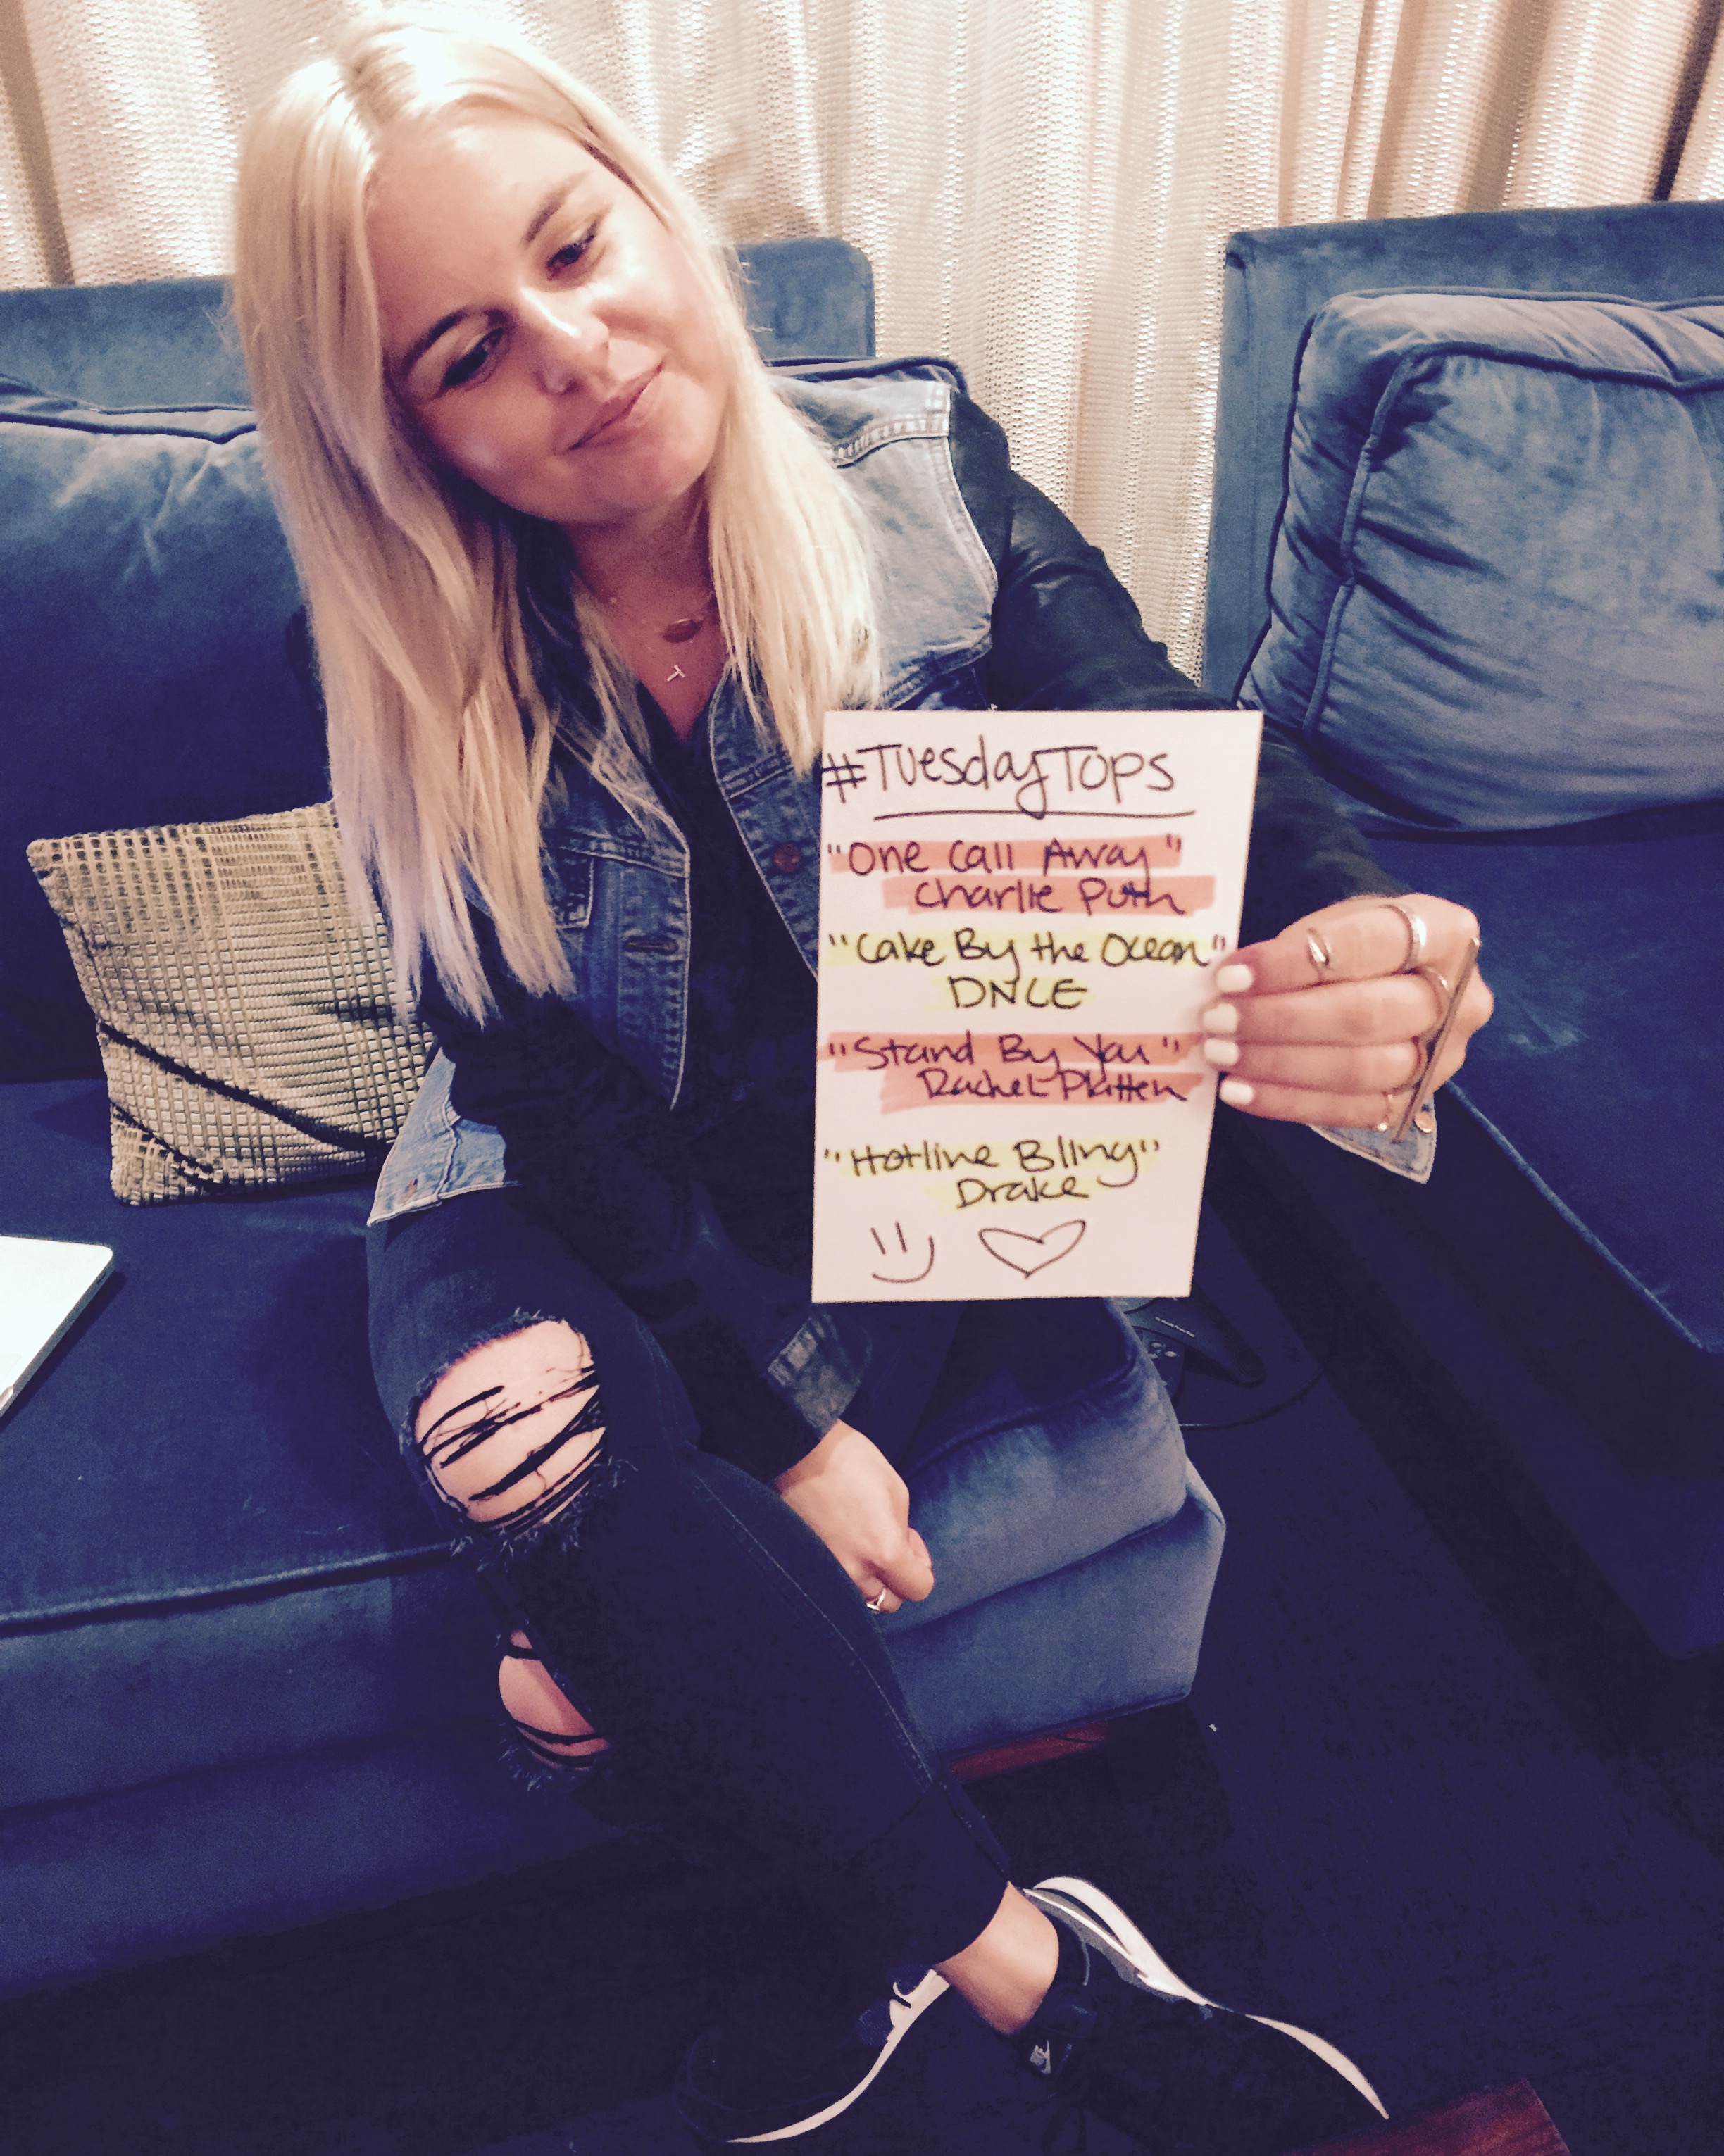 #TuesdayTops
"One Call Away"
Charlie Puth
"Cake By the Ocean"
DNCE
"Stand By You"
Rachel Platten
"Hotline Bling"
Drake